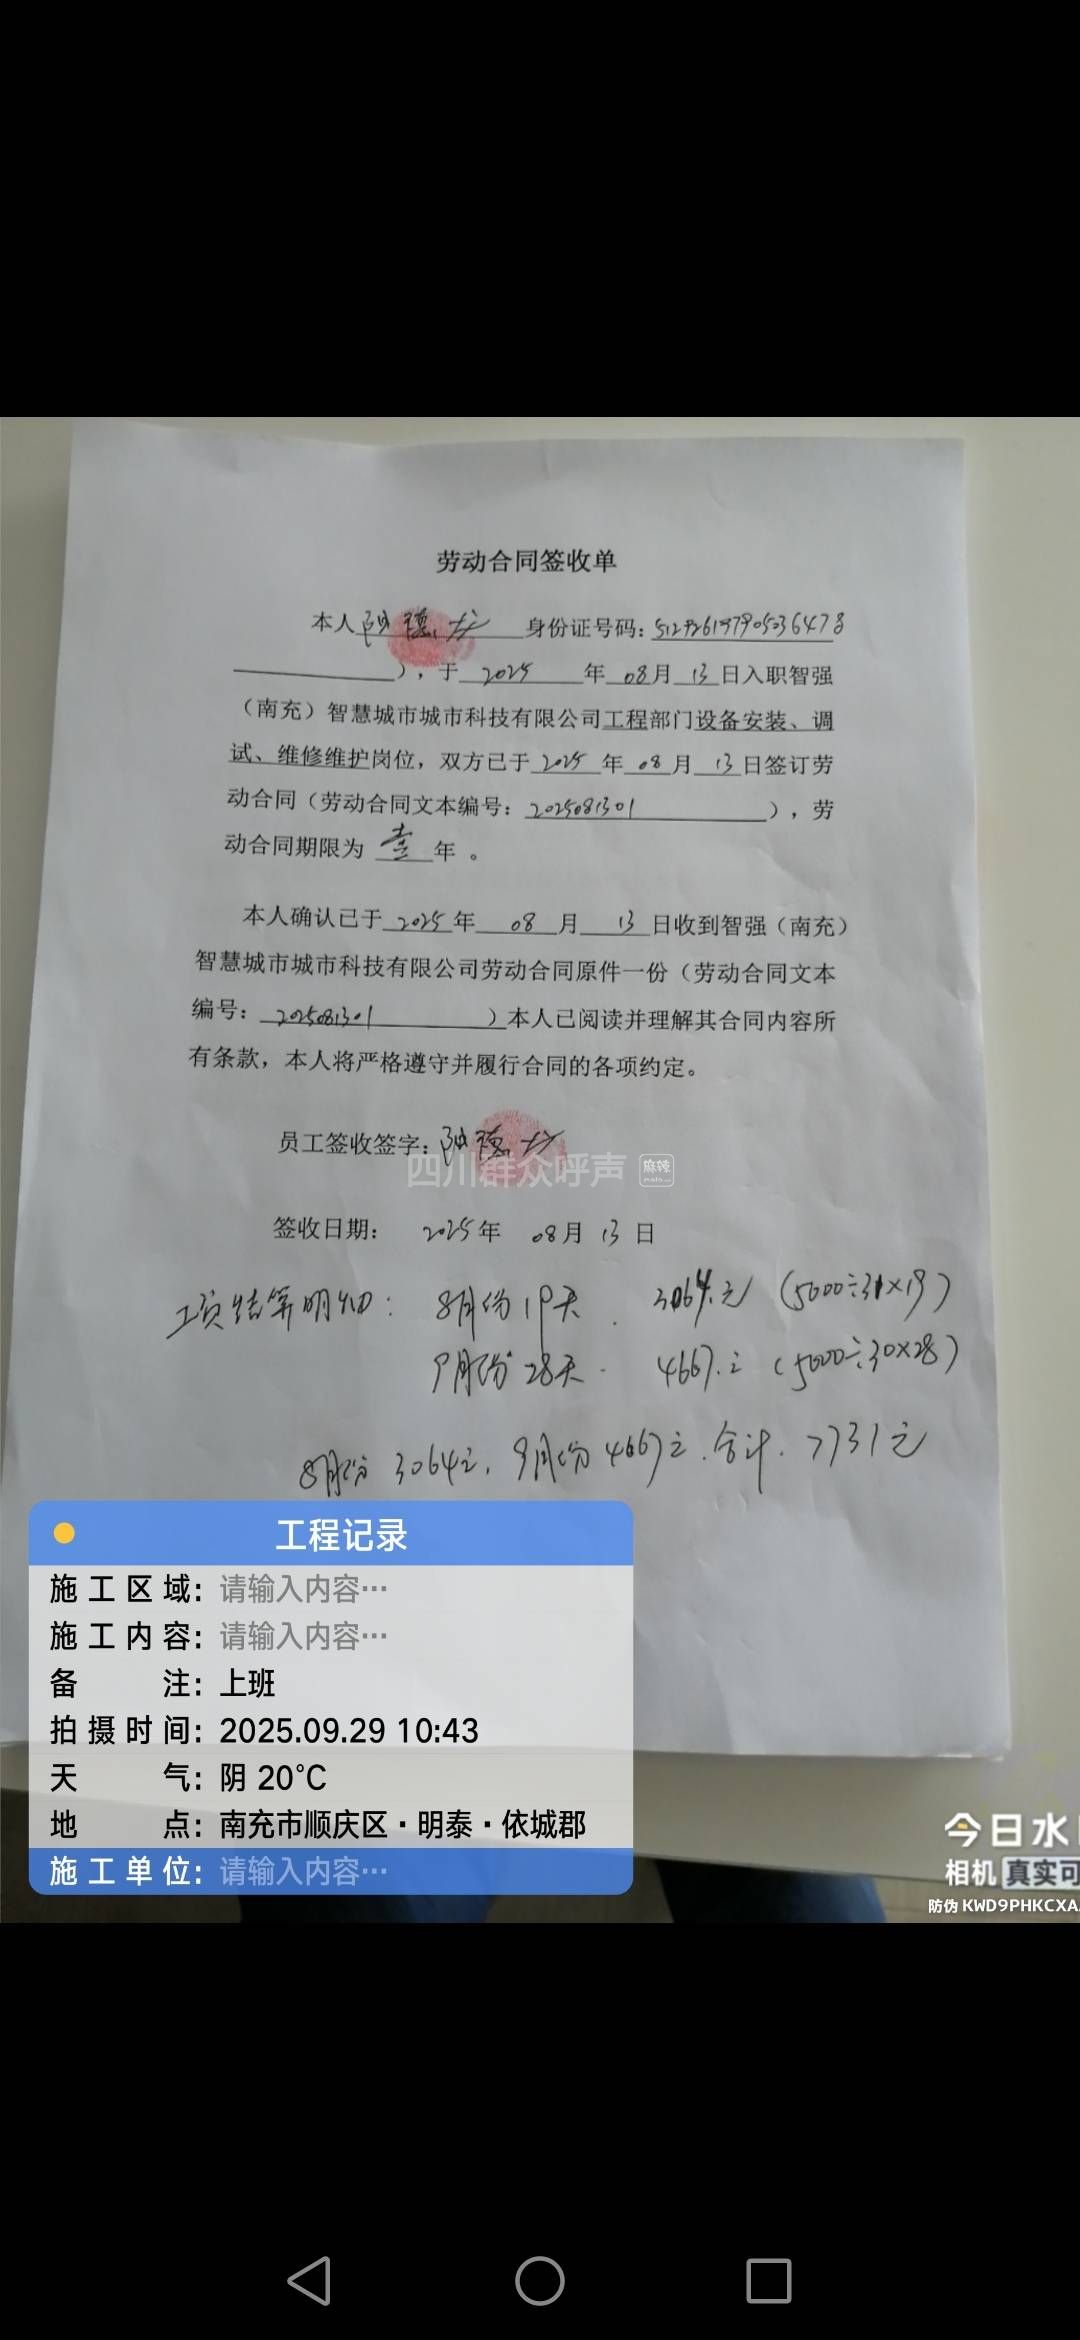 劳动合同签收单
本人 德 身份证号码：512926197905036478
），于 2025 年 08月 13日入职智强
（南充）智慧城市城市科技有限公司工程部门设备安装、调
试、维修维护岗位，双方已于 2025 年 08 月 13日签订劳
动合同（劳动合同文本编号：2025081301 ），劳
动合同期限为 壹 年 。
本人确认已于 2025 年 08 月 13 日收到智强（南充）
智慧城市城市科技有限公司劳动合同原件一份（劳动合同文本
编号：2025081301 ）本人已阅读并理解其合同内容所
有条款，本人将严格遵守并履行合同的各项约定。
员工签收签字： 德
四川群众呼声 麻辣
签收日期： 2025年 08月 13 日
工资结算明细： 8月份19天 . 3064.元 (5000÷31×19)
9月份28天. 4667.元 (5000÷30×28)
8月份 3064元, 9月份 4667元.合计. 7731元
工程记录
施工区域：请输入内容…
施工内容：请输入内容…
备注：上班
拍摄时间：2025.09.29 10:43
天气：阴 20℃
地点：南充市顺庆区·明泰·依城郡
施工单位：请输入内容…
今日水
相机 真实可
防伪 KWD9PHKCXA